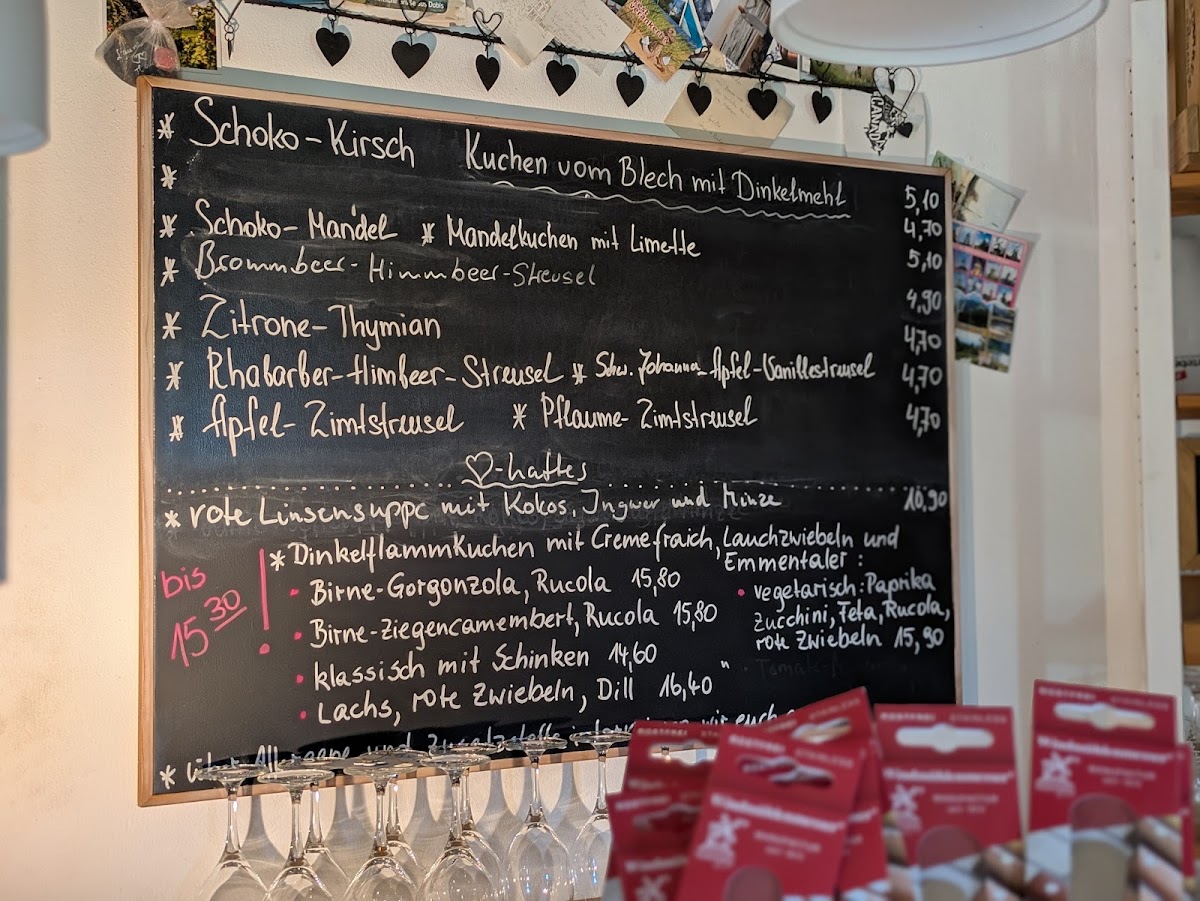 * Schoko-Kirsch Kuchen vom Blech mit Dinkelmehl 5,10
* 4,70
* Schoko-Mandel * Mandelkuchen mit Limette 5,10
* Brommbeer-Himmbeer-Streusel 4,90
* Zitrone-Thymian 4,70
* Rhabarber-Himbeer-Streusel * Schw. Johanna-Apfel-Vanillestreusel 4,70
* Apfel-Zimtstreusel * Pflaume-Zimtstreusel 4,70
♡-haftes
* rote Linsensuppe mit Kokos, Ingwer und Minze 10,90
bis 15 30 !
* Dinkelflammkuchen mit Cremefraich, Lauchzwiebeln und
Emmentaler:
• Birne-Gorgonzola, Rucola 15,80
• Birne-Ziegencamembert, Rucola 15,80
• klassisch mit Schinken 14,60
• Lachs, rote Zwiebeln, Dill 16,40
• vegetarisch: Paprika
Zucchini, Feta, Rucola,
rote Zwiebeln 15,90
* über Allergene und Zusatzstoffe wir euch
CANADA